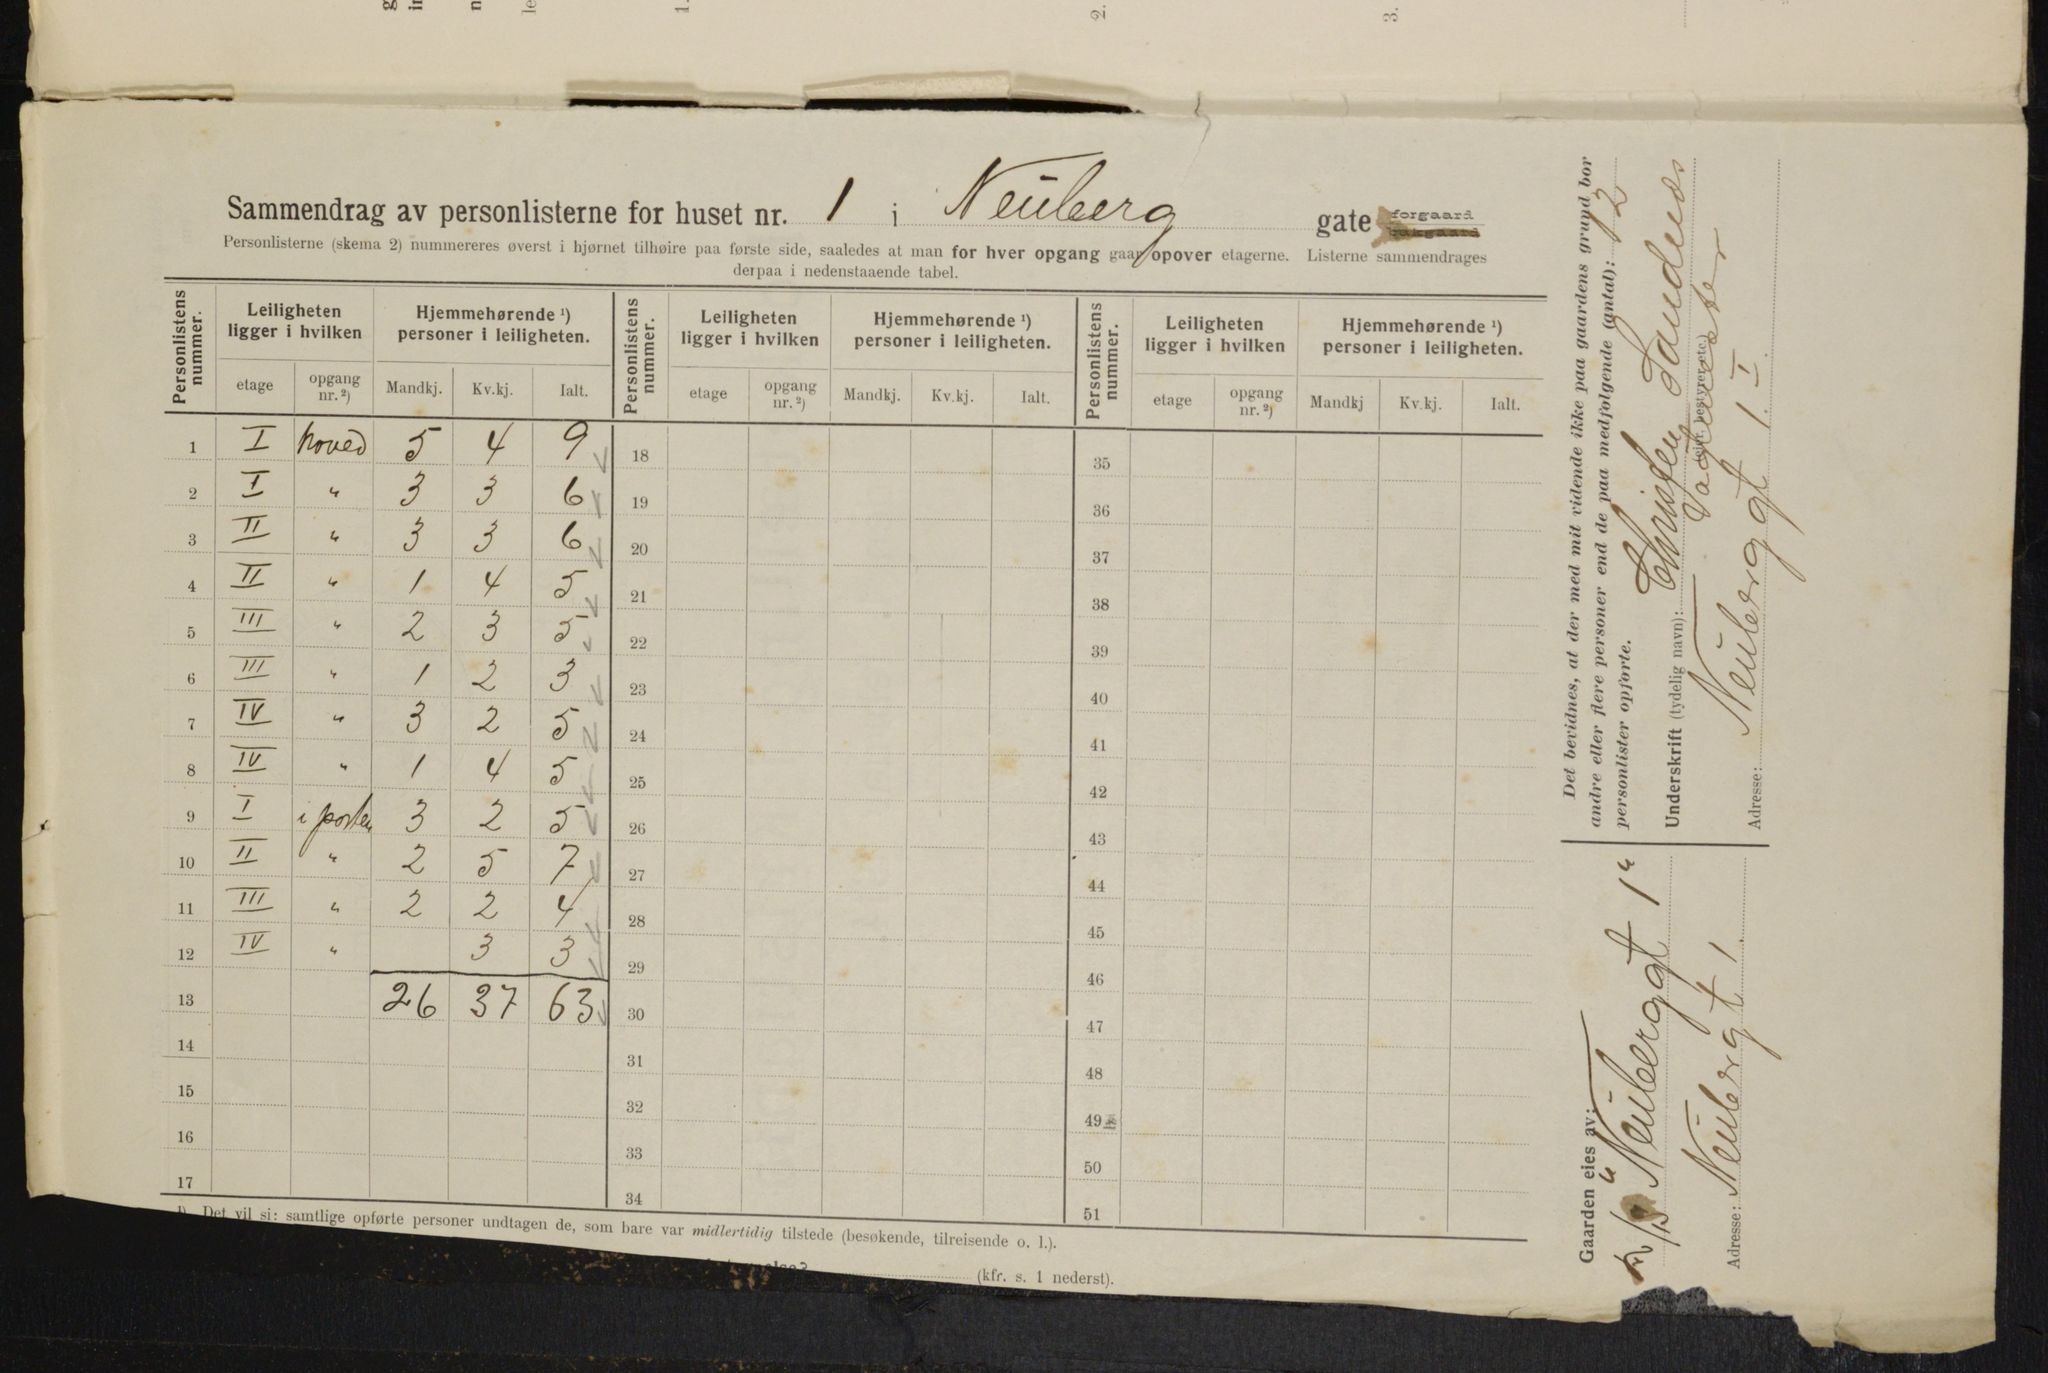 Sammendrag av personlisterne for huset nr. 1 i Neuberg gate forgaard bakgaard
Personlisterne (skema 2) nummereres øverst i hjørnet tilhøire paa første side, saaledes at man for hver opgang gaar opover etagerne. Listerne sammendrages
derpaa i nedenstaaende tabel.
Personlistens nummer. Leiligheten ligger i hvilken Hjemmehørende ¹) personer i leiligheten. Personlistens nummer. Leiligheten ligger i hvilken Hjemmehørende ¹) personer i leiligheten. Personlistens nummer. Leiligheten ligger i hvilken Hjemmehørende ¹) personer i leiligheten.
etage opgang nr. ²) Mandkj. Kv.kj. Ialt. etage opgang nr. ²) Mandkj. Kv.kj. Ialt. etage opgang nr. ²) Mandkj Kv.kj. Ialt.
1 I hoved 5 4 9 18 35
2 I " 3 3 6 19 36
3 II " 3 3 6 20 37
4 II " 1 4 5 21 38
5 III " 2 3 5 22 39
6 III " 1 2 3 23 40
7 IV " 3 2 5 24 41
8 IV " 1 4 5 25 42
9 I i porten 3 2 5 26 43
10 II " 2 5 7 27 44
11 III " 2 2 4 28 45
12 IV " 3 3 29 46
13 26 37 63 30 47
14 31 48
15 32 49
16 33 50
17 34 51
¹) Det vil si: samtlige opførte personer undtagen de, som bare var midlertidig tilstede (besøkende, tilreisende o. l.).
(kfr. s. 1 nederst).
Det bevidnes, at der med mit vidende ikke paa gaardens grund bor
andre eller flere personer end de paa medfølgende (antal): 12
personlister opførte.
Underskrift (tydelig navn): Christen Sandnes
(eier, bestyrer etc.)
Vagtmester
Adresse: Neuberggt 1. I.
Gaarden eies av:
A/S "Neuberggt 1"
Adresse: Neuberggt 1.